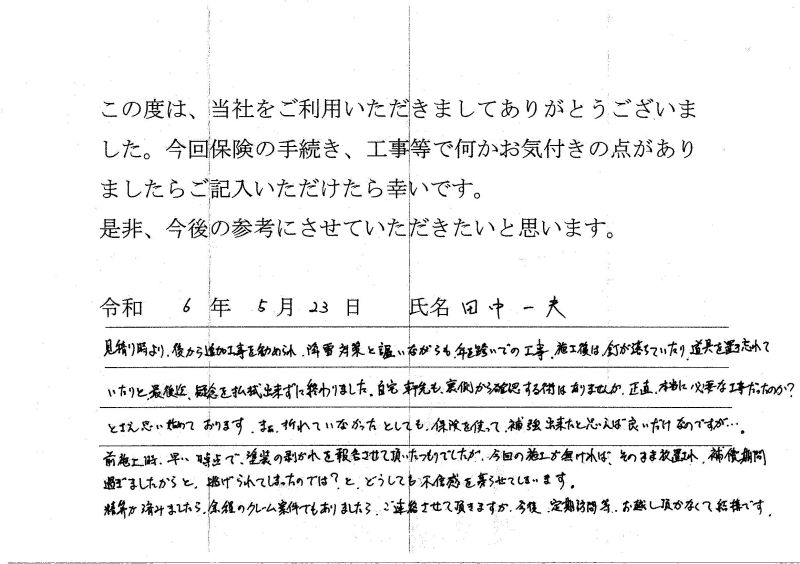 この度は、当社をご利用いただきましてありがとうございま
した。今回保険の手続き、工事等で何かお気付きの点があり
ましたらご記入いただけたら幸いです。
是非、今後の参考にさせていただきたいと思います。
令和 6 年 5 月 23 日 氏名 田中一夫
見積り時より、後から追加工事を勧められ、降雪対策と謳いながらも年を跨いでの工事、施工後は釘が落ちていたり、道具を置き忘れて
いたりと、最後迄、疑念を払拭出来ずに終わりました。自宅軒先も、裏側から確認する術はありませんが、正直、本当に必要な工事だったのか?
とさえ思い始めております。まぁ、折れていなかったとしても、保険を使って、補強出来たと思えば良いだけなのですが…。
前施工時、早い時点で、塗装の剥がれを報告させて頂いたつもりでしたが、今回の施工が無ければ、そのまま放置され、補償期間
過ぎましたからと、逃げられてしまったのでは?と、どうしても不信感を募らせてしまいます。
精算が済みましたら、余程のクレーム案件でもありましたら、ご連絡させて頂きますが、今後、定期訪問等、お越し頂かなくて結構です。